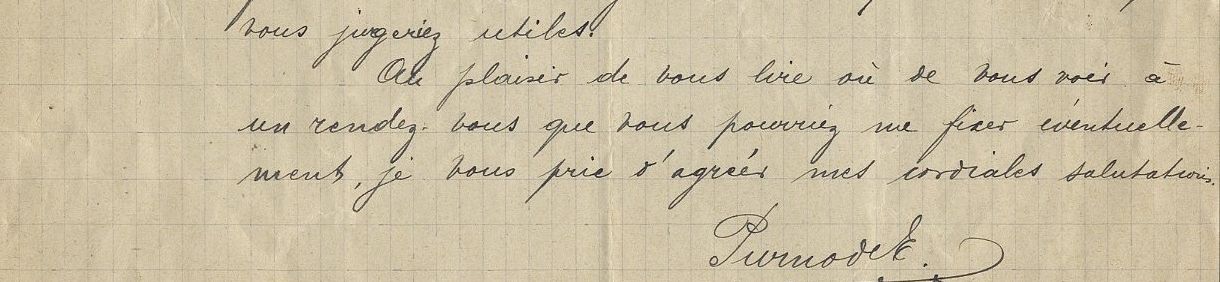 vous jugeriez utiles.
Au plaisir de vous lire où de vous voir à
un rendez-vous que vous pourriez me fixer éventuelle-
ment, je vous prie d'agréer mes cordiales salutations.